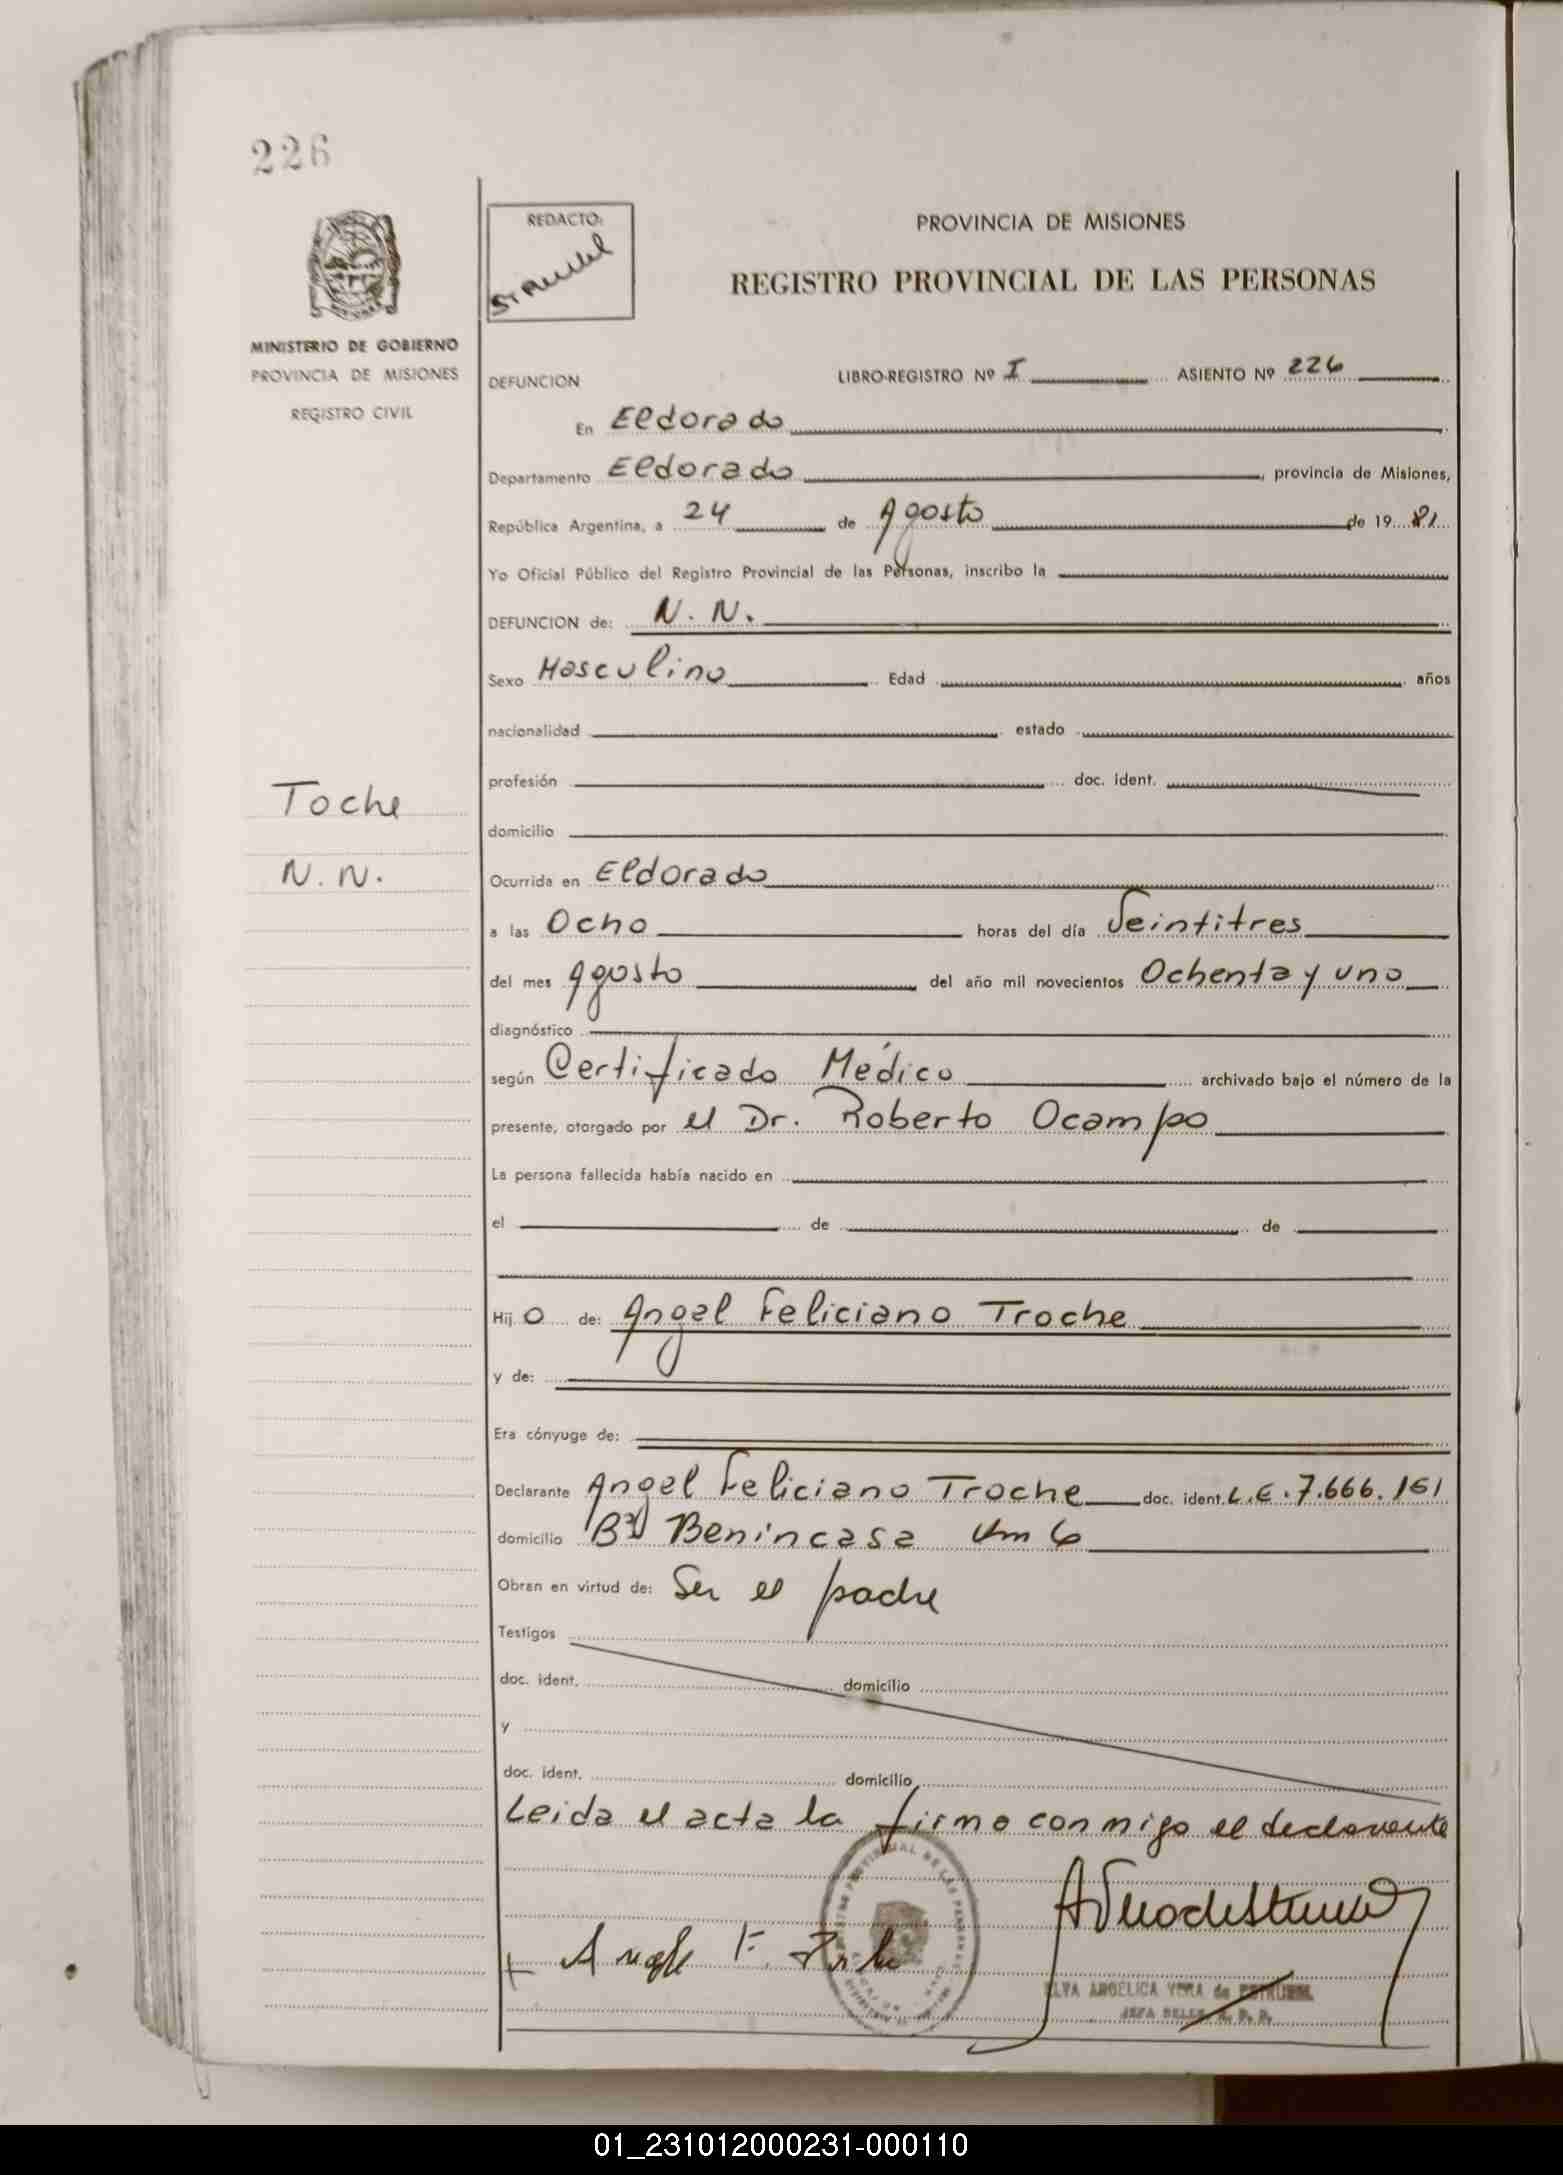 226
REDACTO:
PROVINCIA DE MISIONES
REGISTRO PROVINCIAL DE LAS PERSONAS
MINISTERIO DE GOBIERNO
PROVINCIA DE MISIONES
REGISTRO CIVIL
DEFUNCION LIBRO-REGISTRO Nº I ASIENTO Nº 226
En Eldorado
Departamento Eldorado, provincia de Misiones,
República Argentina, a 24 de Agosto de 19 81
Yo Oficial Público del Registro Provincial de las Personas, inscribo la
DEFUNCION de: N. N.
Sexo Masculino Edad años
nacionalidad estado
profesión doc. ident.
Toche
domicilio
N. N.
Ocurrida en Eldorado
a las Ocho horas del día Veintitres
del mes Agosto del año mil novecientos Ochenta y uno
diagnóstico
según Certificado Médico archivado bajo el número de la
presente, otorgado por el Dr. Roberto Ocampo
La persona fallecida había nacido en
el de de
Hij o de: Angel Feliciano Troche
y de:
Era cónyuge de:
Declarante Angel Feliciano Troche doc. ident. L.E. 7.666.161
domicilio Bº Benincasa Km 6
Obran en virtud de: Ser el padre
Testigos
doc. ident. domicilio
y
doc. ident. domicilio
Leida el acta la firma conmigo el declarante
ELVA ANGELICA VERA de
01_231012000231-000110